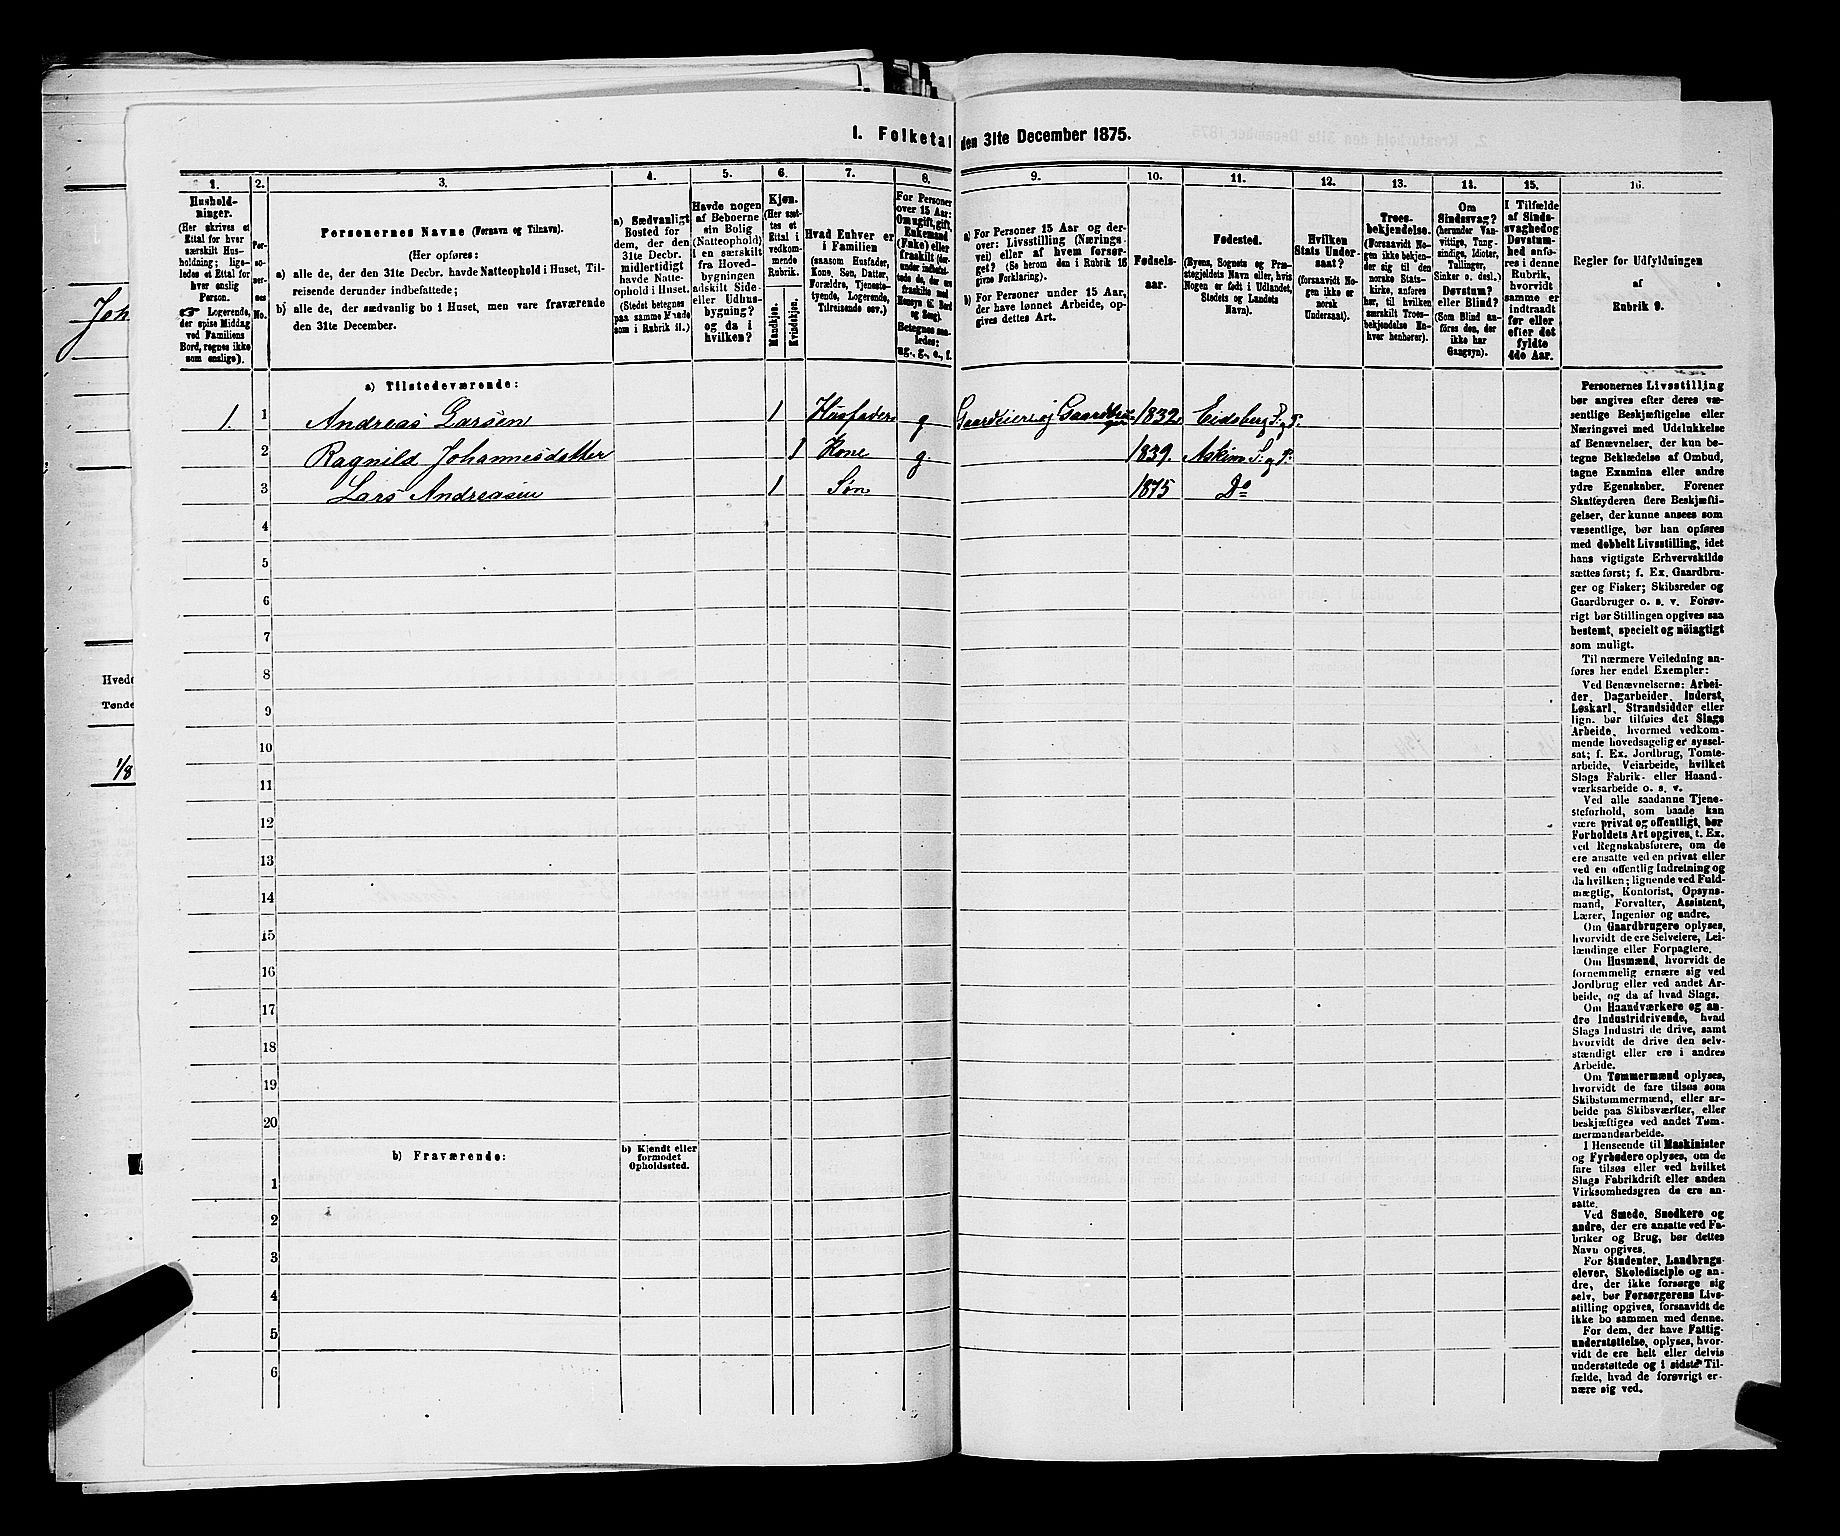 1. Folketal den 31te December 1875.
1. 2. 3. 4. 5. 6. 7. 8. 9. 10. 11. 12. 13. 14. 15. 16.
Hushold-
ninger.
(Her skrives et
Ettal for hver
særskilt Hus-
holdning; lige-
ledes et Ettal for
hver enslig
Person.
☞ Logerende,
der spise Middag
ved Familiens
Bord, regnes ikke
som enslige).
Per-
so-
ner-
nes
No.
Personernes Navne (Fornavn og Tilnavn).
(Her opføres:
a) alle de, der den 31te Decbr. havde Natteophold i Huset, Til-
reisende derunder indbefattede;
b) alle de, der sædvanlig bo i Huset, men vare fraværende
den 31te December.
a) Sædvanligt
Bosted for
dem, der den
31te Decbr.
midlertidigt
havde Natte-
ophold i Huset.
(Stedet betegnes
paa samme Maade
som i Rubrik 11.)
Havde nogen
af Beboerne
sin Bolig
(Natteophold)
i en særskilt
fra Hoved-
bygningen
adskilt Side-
eller Udhus-
bygning?
og da i
hvilken?
Kjøn.
(Her sæt-
tes et
Ettal i
vedkom-
mende
Rubrik.
Mandkjøn.
Kvindekjøn.
Hvad Enhver er
i Familien
(saasom Husfader,
Kone, Søn, Datter,
Forældre, Tjeneste-
tyende, Logerende,
Tilreisende osv.)
For Personer
over 15 Aar:
Om ugift, gift,
Enkemand
(Enke) eller
fraskilt (der-
under indbefat-
tede de, der ere
fraskilte med
Hensyn til Bord
og Seng).
Betegnes saa-
ledes:
ug., g., e., f.
a) For Personer 15 Aar og der-
over: Livsstilling (Nærings-
vei) eller af hvem forsør-
get? (Se herom den i Rubrik 16
givne Forklaring).
b) For Personer under 15 Aar,
der have lønnet Arbeide, op-
gives dettes Art.
Fødsels-
aar.
Fødested.
(Byens, Sognets og Præ-
stegjeldets Navn eller, hvis
Nogen er født i Udlandet,
Stedets og Landets
Navn).
Hvilken
Stats Under-
saat?
(forsaavidt No-
gen ikke er
norsk
Undersaat).
Troes-
bekjendelse.
(Forsaavidt No-
gen ikke bekjen-
der sig til den
norske Stats-
kirke, anføres
her, til hvilken
særskilt Troes-
bekjendelse En-
hver henhører).
Om
Sindssvag?
(herunder Van-
vittige, Tung-
sindige, Idioter,
Tullinger,
Sinker o. desl.)
Døvstum?
eller Blind?
(Som Blind an-
føres den, der
ikke har
Gangsyn).
I Tilfælde
af Sinds-
svaghed og
Døvstum-
hed anfø-
res i denne
Rubrik,
hvorvidt
samme er
indtraadt
før eller
efter det
fyldte
4de Aar.
Regler for Udfyldningen
af
Rubrik 9.
a) Tilstedeværende:
1. 1 Andreas Larsen 1 Husfader g Gaardeier og Gaardbruger 1832 Eidsberg S. og P.
2 Ragnild Johannesdatter 1 Kone g. 1839. Askim S: og P:
3 Lars Andreasen 1 Søn 1875 Do
4
5
6
7
8
9
10
11
12
13
14
15
16
17
18
19
20
b) Fraværende:
b) Kjendt eller
formodet
Opholdssted.
1
2
3
4
5
6
Personernes Livsstilling
bør angives efter deres væ-
sentlige Beskjæftigelse eller
Næringsvei med Udelukkelse
af Benævnelser, der kun be-
tegne Beklædelse af Ombud,
tagne Examina eller andre
ydre Egenskaber. Forener
Skatteyderen flere Beskjæfti-
gelser, der kunne ansees som
væsentlige, bør han opføres
med dobbelt Livsstilling, idet
hans vigtigste Erhvervskilde
sættes først; f. Ex. Gaardbru-
ger og Fisker; Skibsreder og
Gaardbruger o. s. v. Forøv-
rigt bør Stillingen opgives saa
bestemt, specielt og nöiagtigt
som muligt.
Til nærmere Veiledning an-
føres her endel Exempler:
Ved Benævnelserne: Arbei-
der, Dagarbeider, Inderst,
Løskarl, Strandsidder eller
lign. bør tilføies det Slags
Arbeide, hvormed vedkom-
mende hovedsagelig er syssel-
sat; f. Ex. Jordbrug, Tomte-
arbeide, Veiarbeide, hvilket
Slags Fabrik- eller Haand-
værksarbeide o. s. v.
Ved alle saadanne Tjene-
steforhold, som baade kan
være privat og offentligt, bør
Forholdets Art opgives, t. Ex.
ved Regnskabsførere, om de
ere ansatte ved en privat eller
ved en offentlig Indretning og
da hvilken; lignende ved Fuld-
mægtig, Kontorist, Opsyns-
mand, Forvalter, Assistent,
Lærer, Ingeniør og andre.
Om Gaardbrugere oplyses,
hvorvidt de ere Selveiere, Lei-
lændinge eller Forpagtere.
Om Husmænd, hvorvidt de
fornemmelig ernære sig ved
Jordbrug eller ved andet Ar-
beide, og da af hvad Slags.
Om Haandværkere og an-
dre Industridrivende, hvad
Slags Industri de drive, samt
hvorvidt de drive den selv-
stændigt eller ere i andres
Arbeide.
Om Tømmermænd oplyses,
hvorvidt de fare tilsøs som
Skibstømmermænd, eller ar-
beide paa Skibsværfter, eller
beskjæftiges ved andet Tøm-
mermandsarbeide.
I Henseende til Maskinister
og Fyrbødere oplyses, om de
fare tilsøs eller ved hvilket
Slags Fabrikdrift eller anden
Virksomhedsgren de ere an-
satte.
Ved Smede, Snedkere og
andre, der ere ansatte ved Fa-
briker og Brug, bør dettes
Navn opgives.
For Studenter, Landbrugs-
elever, Skoledisciple og an-
dre, der ikke forsørge sig
selv, bør Forsørgerens Livs-
stilling opgives, forsaavidt de
ikke bo sammen med denne.
For dem, der have Fattig-
understøttelse, oplyses, hvor-
vidt de ere helt eller delvis
understøttede og i sidste Til-
fælde, hvad de forøvrigt er-
nære sig ved.
Joh
Tønde
1/8